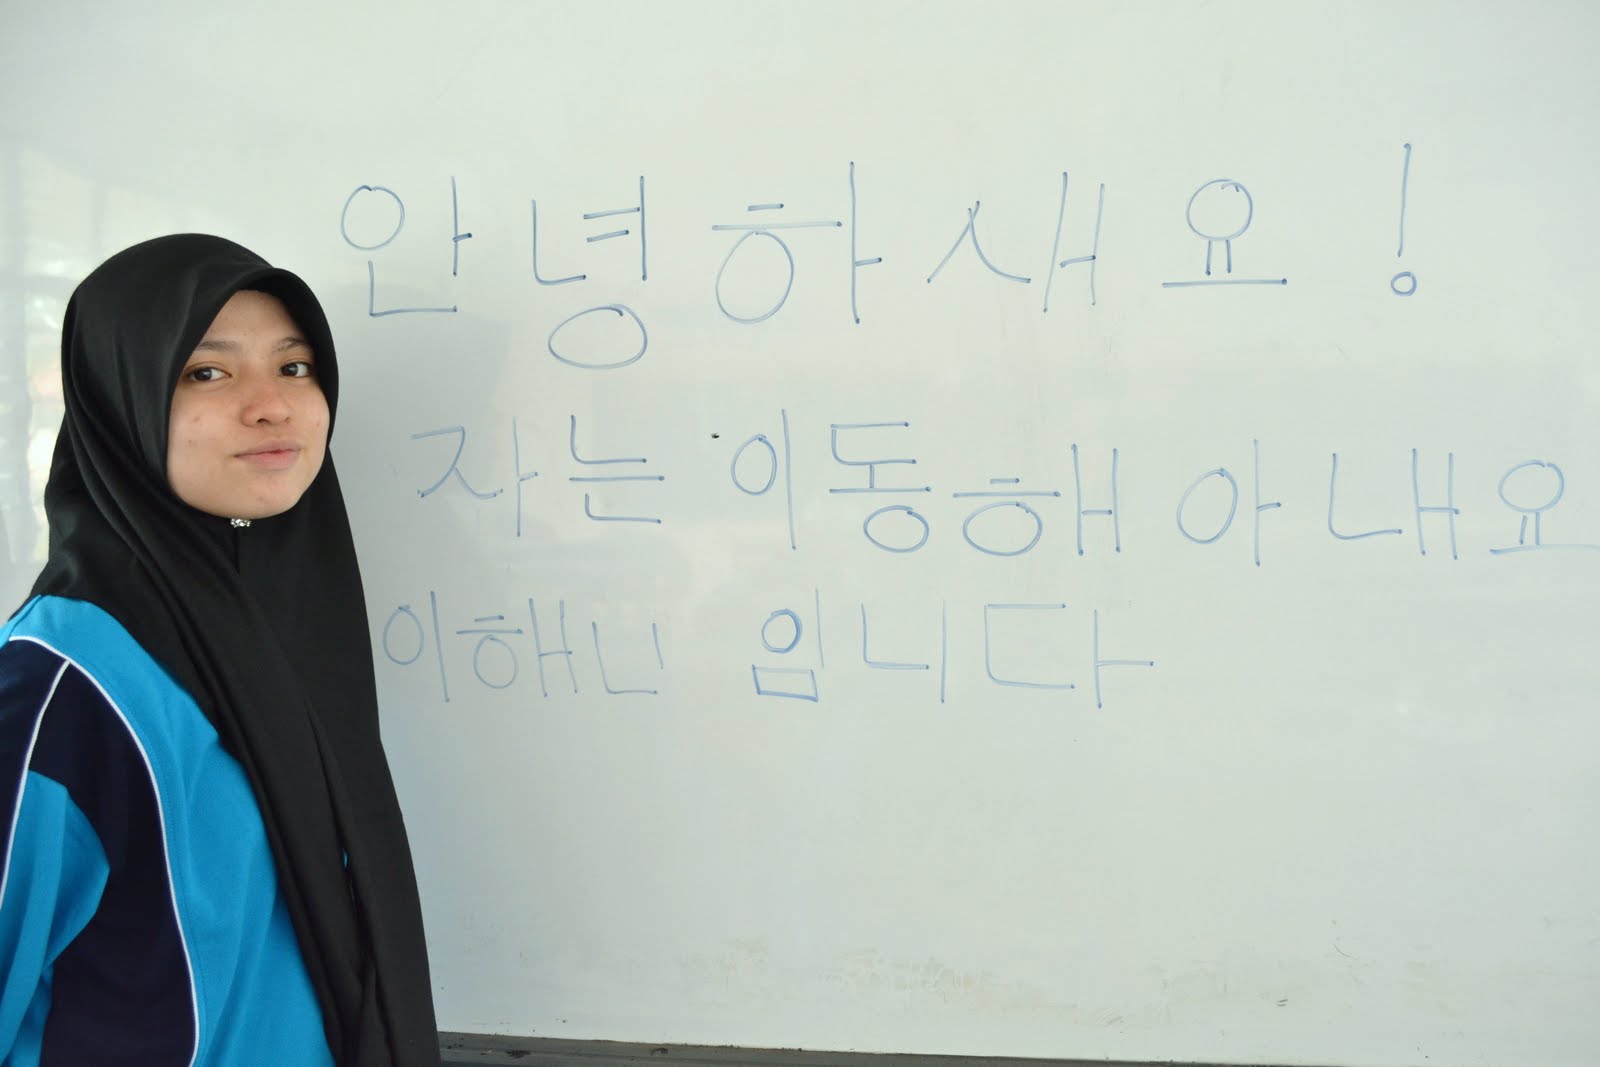 안녕하새요!
자는 이동해 아내요
이해닌 임니다